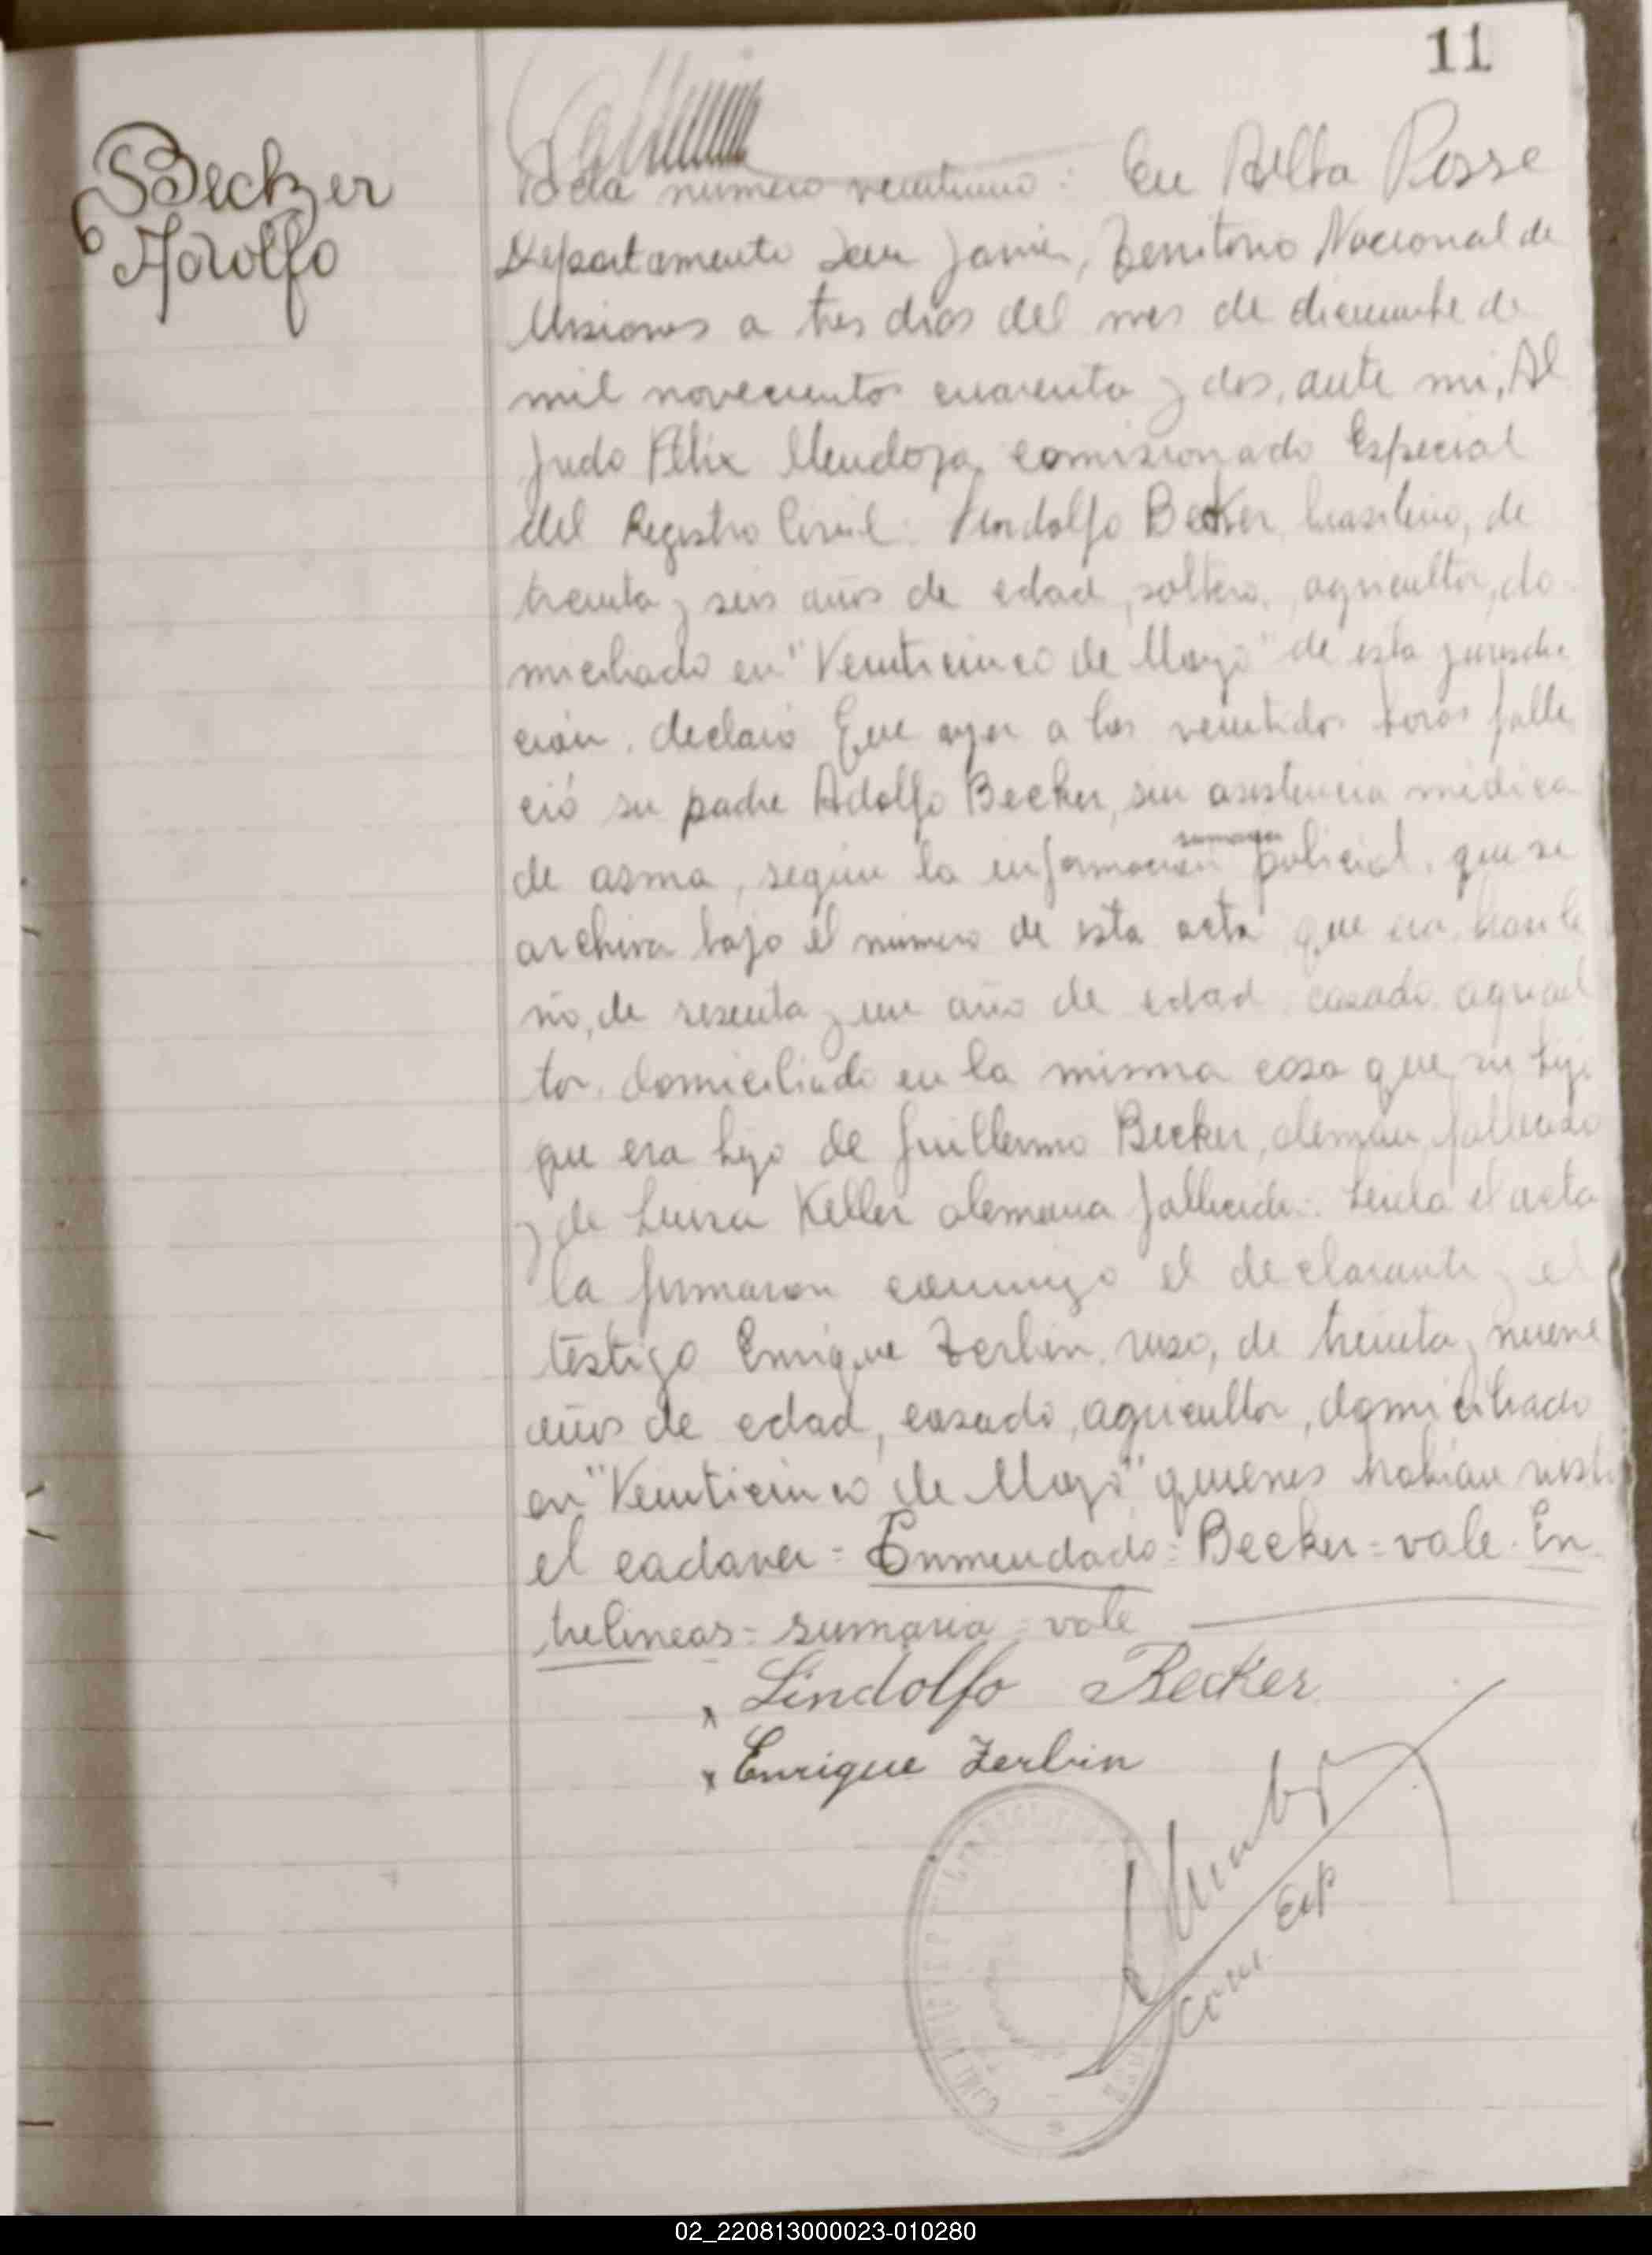 11
Becker
Adolfo
Acta número veintiuno: En Alba Posse
Departamento San Javier, Territorio Nacional de
Misiones a tres dias del mes de diciembre de
mil novecientos cuarenta y dos, ante mi, Al
fredo Félix Mendoza, comisionado Especial
del Registro Civil: Lindolfo Becker, brasileño, de
treinta y seis años de edad, soltero, agricultor, do
miciliado en "Veinticinco de Mayo" de esta jurisdic
ción, declaró Que ayer a las veintidos horas falle
ció su padre Adolfo Becker, sin asistencia médica
de asma, según la información sumaria policial, que se
archiva bajo el número de esta acta que era brasile
ño, de sesenta y un año de edad, casado, agricul
tor, domiciliado en la misma casa que su hijo
que era hijo de Guillermo Becker, alemán, fallecido
y de Luisa Keller alemana fallecida: Leída el acta
la firmaron conmigo el declarante y el
testigo Enrique Zerbin, ruso, de treinta y nueve
años de edad, casado, agricultor, domiciliado
en "Veinticinco de Mayo" quienes habían visto
el cadaver = Enmendado = Becker = vale. En
trelineas = sumaria = vale
Lindolfo Becker
Enrique Zerbin
Com. Esp
02_220813000023-010280